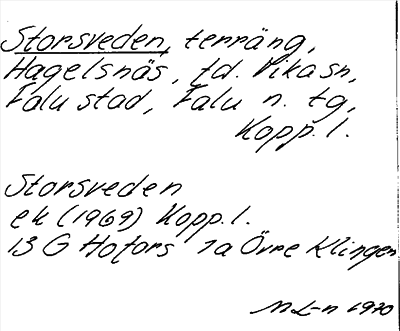 Storsveden, terräng,
Hagelsnäs, fd. Vika sn,
Falu stad, Falu n. tg,
Kopp. l.
Storsveden
ek (1969) Kopp. l.
13 G Hofors 7a Övre Klingen
M L-n 1970